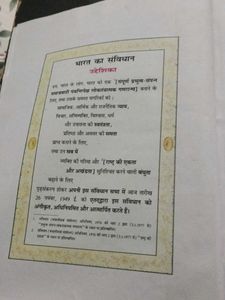 भारत का संविधान
उद्देशिका
हम, भारत के लोग, भारत को एक ¹[संपूर्ण प्रभुत्व-संपन्न
समाजवादी पंथनिरपेक्ष लोकतंत्रात्मक गणराज्य] बनाने के
लिए, तथा उसके समस्त नागरिकों को :
सामाजिक, आर्थिक और राजनैतिक न्याय,
विचार, अभिव्यक्ति, विश्वास, धर्म
और उपासना की स्वतंत्रता,
प्रतिष्ठा और अवसर की समता
प्राप्त कराने के लिए,
तथा उन सब में
व्यक्ति की गरिमा और ²[राष्ट्र की एकता
और अखंडता] सुनिश्चित करने वाली बंधुता
बढ़ाने के लिए
दृढ़संकल्प होकर अपनी इस संविधान सभा में आज तारीख
26 नवंबर, 1949 ई. को एतद्द्वारा इस संविधान को
अंगीकृत, अधिनियमित और आत्मार्पित करते हैं।